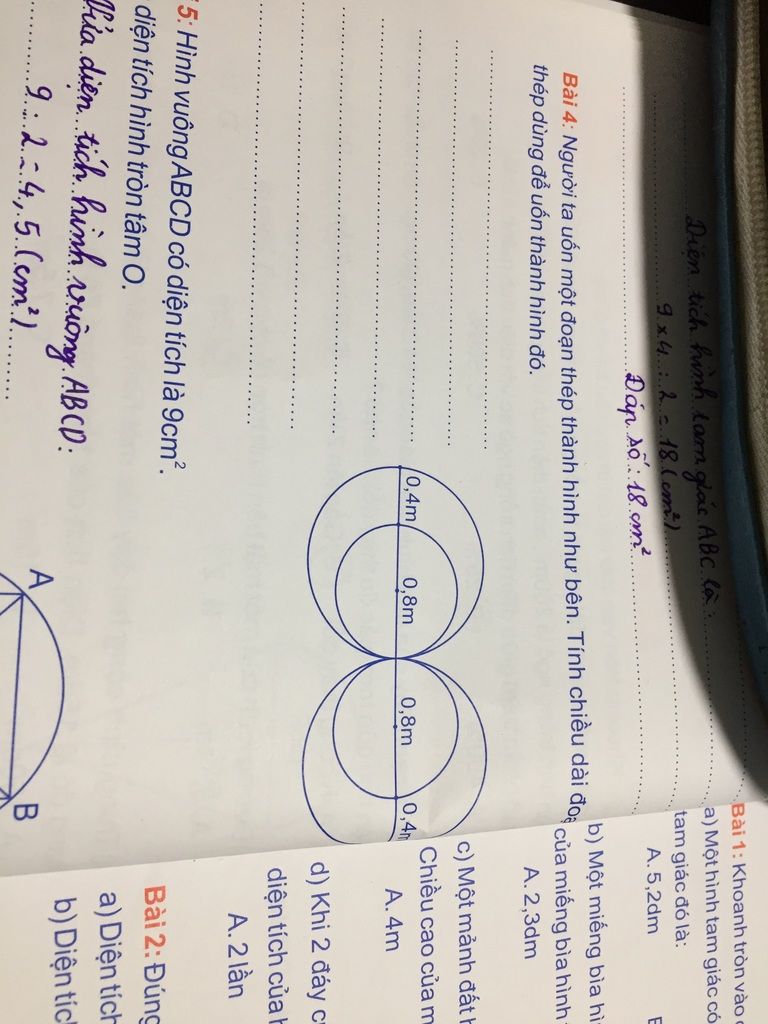 Diện tích hình tam giác ABC là:
9 x 4 : 2 = 18 (cm²)
Đáp số: 18 cm²
Bài 4: Người ta uốn một đoạn thép thành hình như bên. Tính chiều dài
thép dùng để uốn thành hình đó.
0,4m 0,8m 0,8m 0,4m
5: Hình vuông ABCD có diện tích là 9cm².
diện tích hình tròn tâm O.
Nửa diện tích hình vuông ABCD:
9 : 2 = 4,5 (cm²)
A B
Bài 1: Khoanh tròn vào
a) Một hình tam giác có
tam giác đó là:
A. 5,2dm
b) Một miếng bìa hì
của miếng bìa hình
A. 2,3dm
c) Một mảnh đất h
Chiều cao của m
A. 4m
d) Khi 2 đáy c
diện tích của h
A. 2 lần
Bài 2: Đúng
a) Diện tích
b) Diện tíc